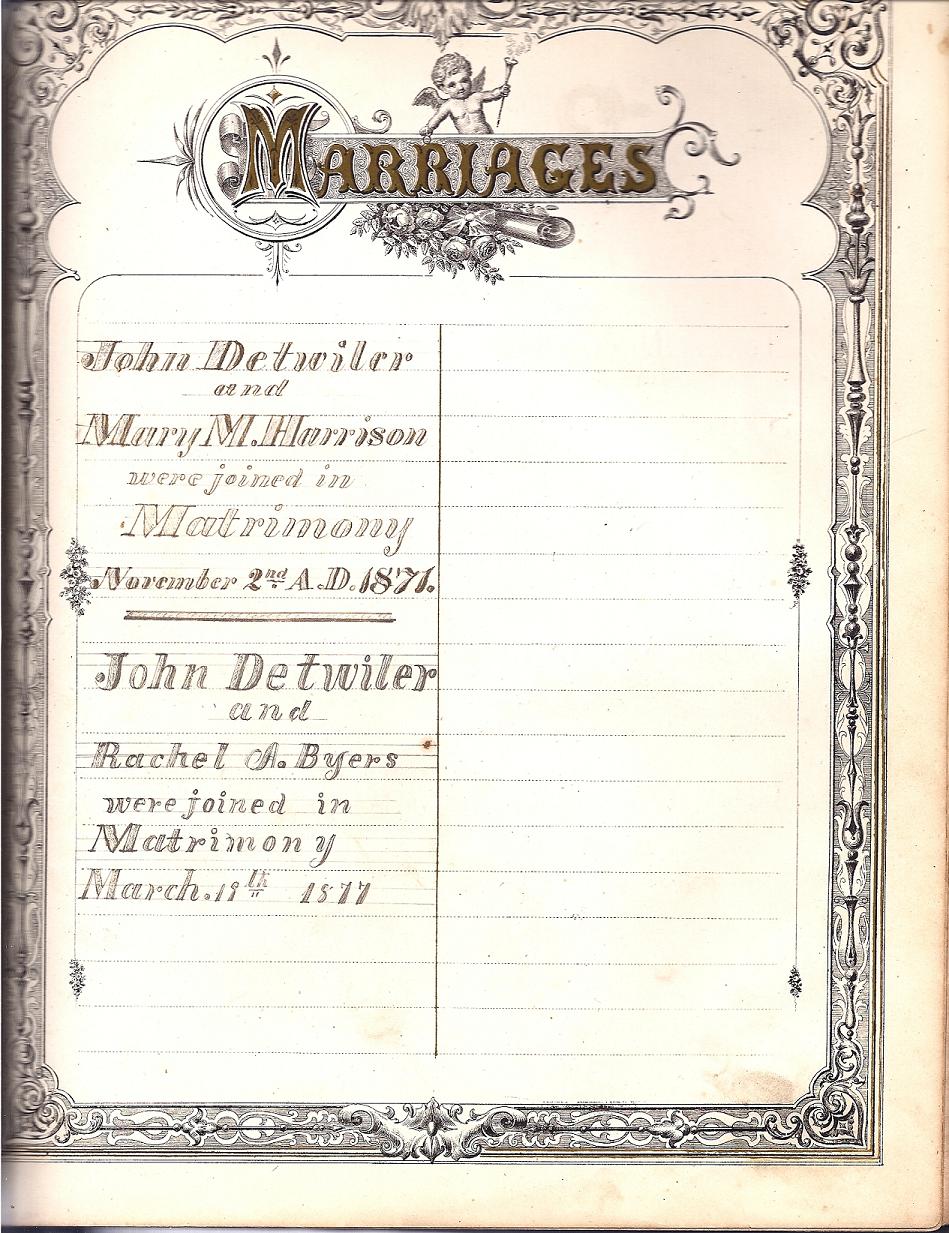 MARRIAGES
John Detwiler
and
Mary M. Harrison
were joined in
Matrimony
November 2nd A.D. 1871.
John Detwiler
and
Rachel A. Byers
were joined in
Matrimony
March. 1877